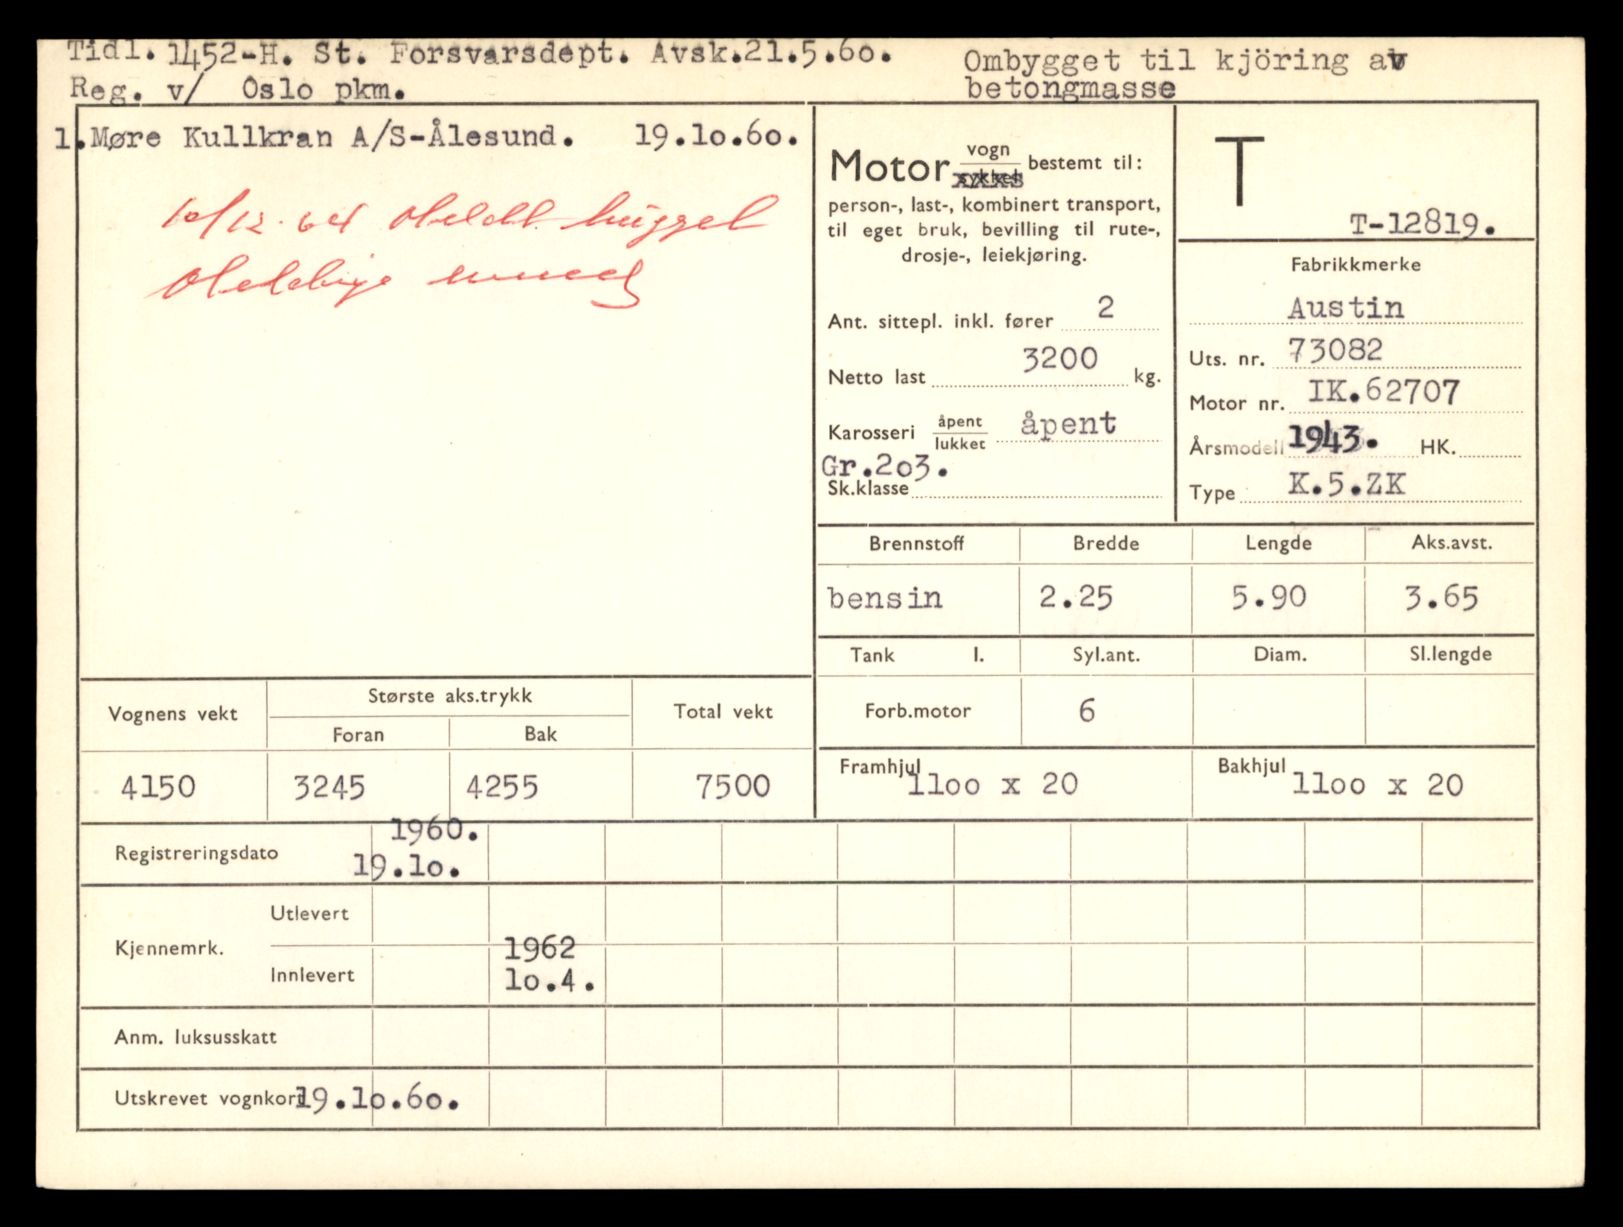 Tidl. 1452-H. St. Forsvarsdept. Avsk.21.5.60.
Reg. v/ Oslo pkm.
Ombygget til kjöring av
betongmasse
1.Møre Kullkran A/S-Ålesund. 19.10.60.
10/12.64
Motor vogn bestemt til:
person-, last-, kombinert transport,
til eget bruk, bevilling til rute-,
drosje-, leiekjøring.
Ant. sittepl. inkl. fører 2
Netto last 3200 kg.
Karosseri åpent lukket åpent
Gr.203.
Sk.klasse
T
T-12819.
Fabrikkmerke
Austin
Uts. nr. 73082
Motor nr. IK.62707
Årsmodell 1943. HK.
Type K.5.ZK
Brennstoff Bredde Lengde Aks.avst.
bensin 2.25 5.90 3.65
Tank l. Syl.ant. Diam. Sl.lengde
Forb.motor 6
Framhjul 1100 x 20 Bakhjul 1100 x 20
Vognens vekt Største aks.trykk Total vekt
Foran Bak
4150 3245 4255 7500
Registreringsdato 1960.
19.10.
Kjennemrk.
Utlevert
Innlevert
1962
10.4.
Anm. luksusskatt
Utskrevet vognkort 19.10.60.